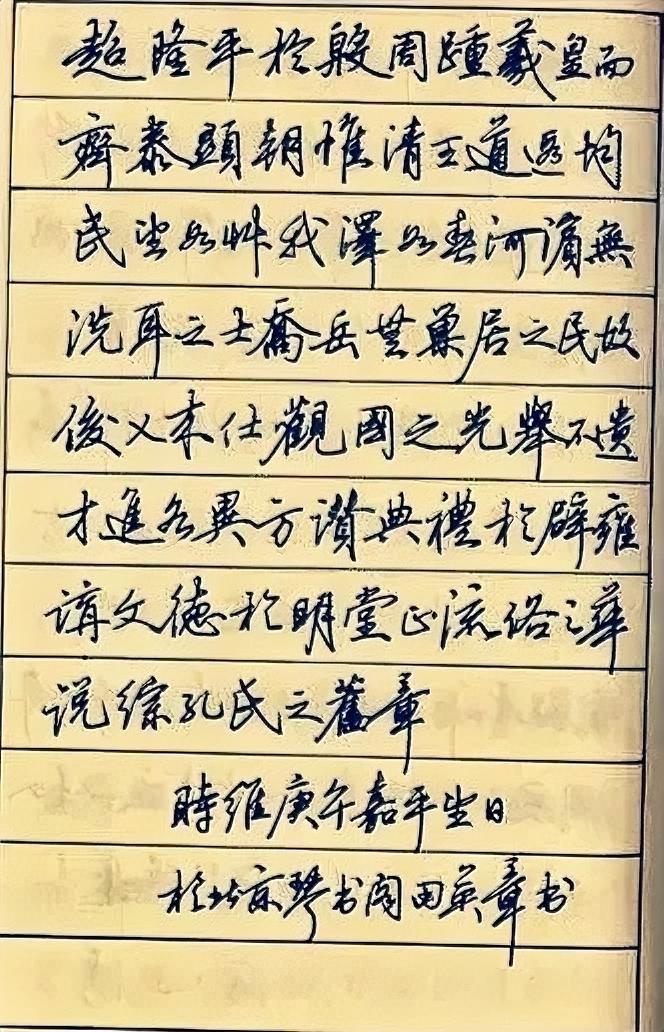 超隆平於殷周踵羲皇而
齊泰顯朝惟清王道遐均
民望如艸我澤如春河濱無
洗耳之士喬岳無巢居之民故
俊乂来仕觀國之光舉不遺
才進各異方讃典禮於辟雍
講文德於明堂正流俗之華
说綜孔氏之舊章
時維庚午嘉平生日
於北京琴书阁田英章书